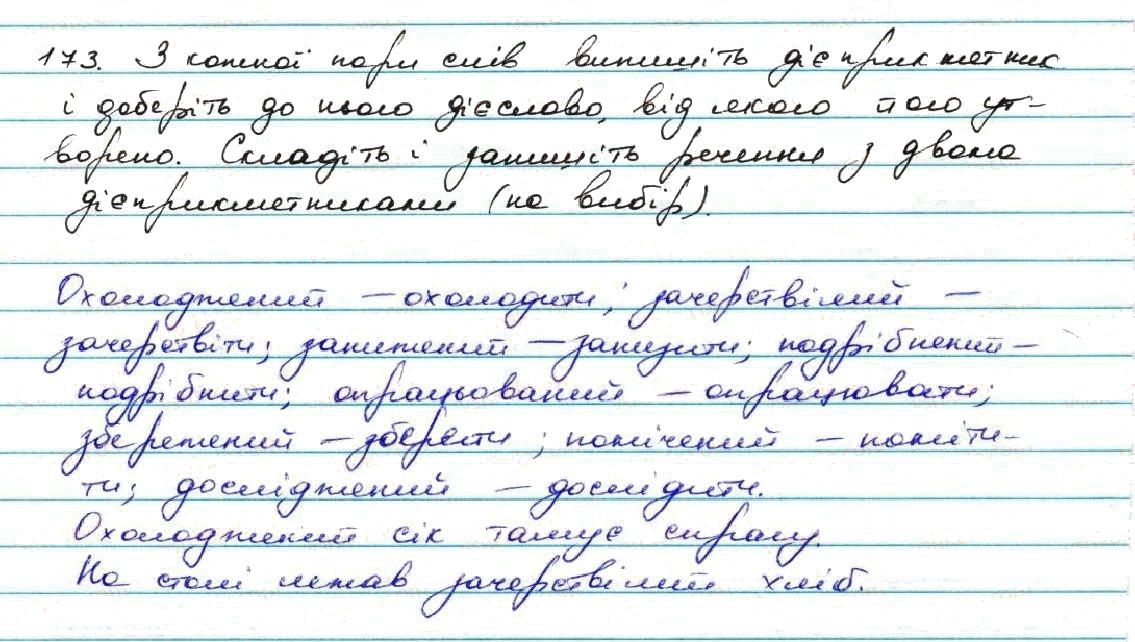 173. З кожної пари слів випишіть дієприкметник
і доберіть до нього дієслово, від якого його ут-
ворено. Складіть і запишіть речення з двома
дієприкметниками (на вибір).
Охолоджений – охолодити; зачерствілий –
зачерствіти; занижений – занизити; подрібнений –
подрібнити; опрацьований – опрацювати;
збережений – зберегти; помічений – поміти-
ти; досліджений – дослідити.
Охолоджений сік тамує спрагу.
На столі лежав зачерствілий хліб.